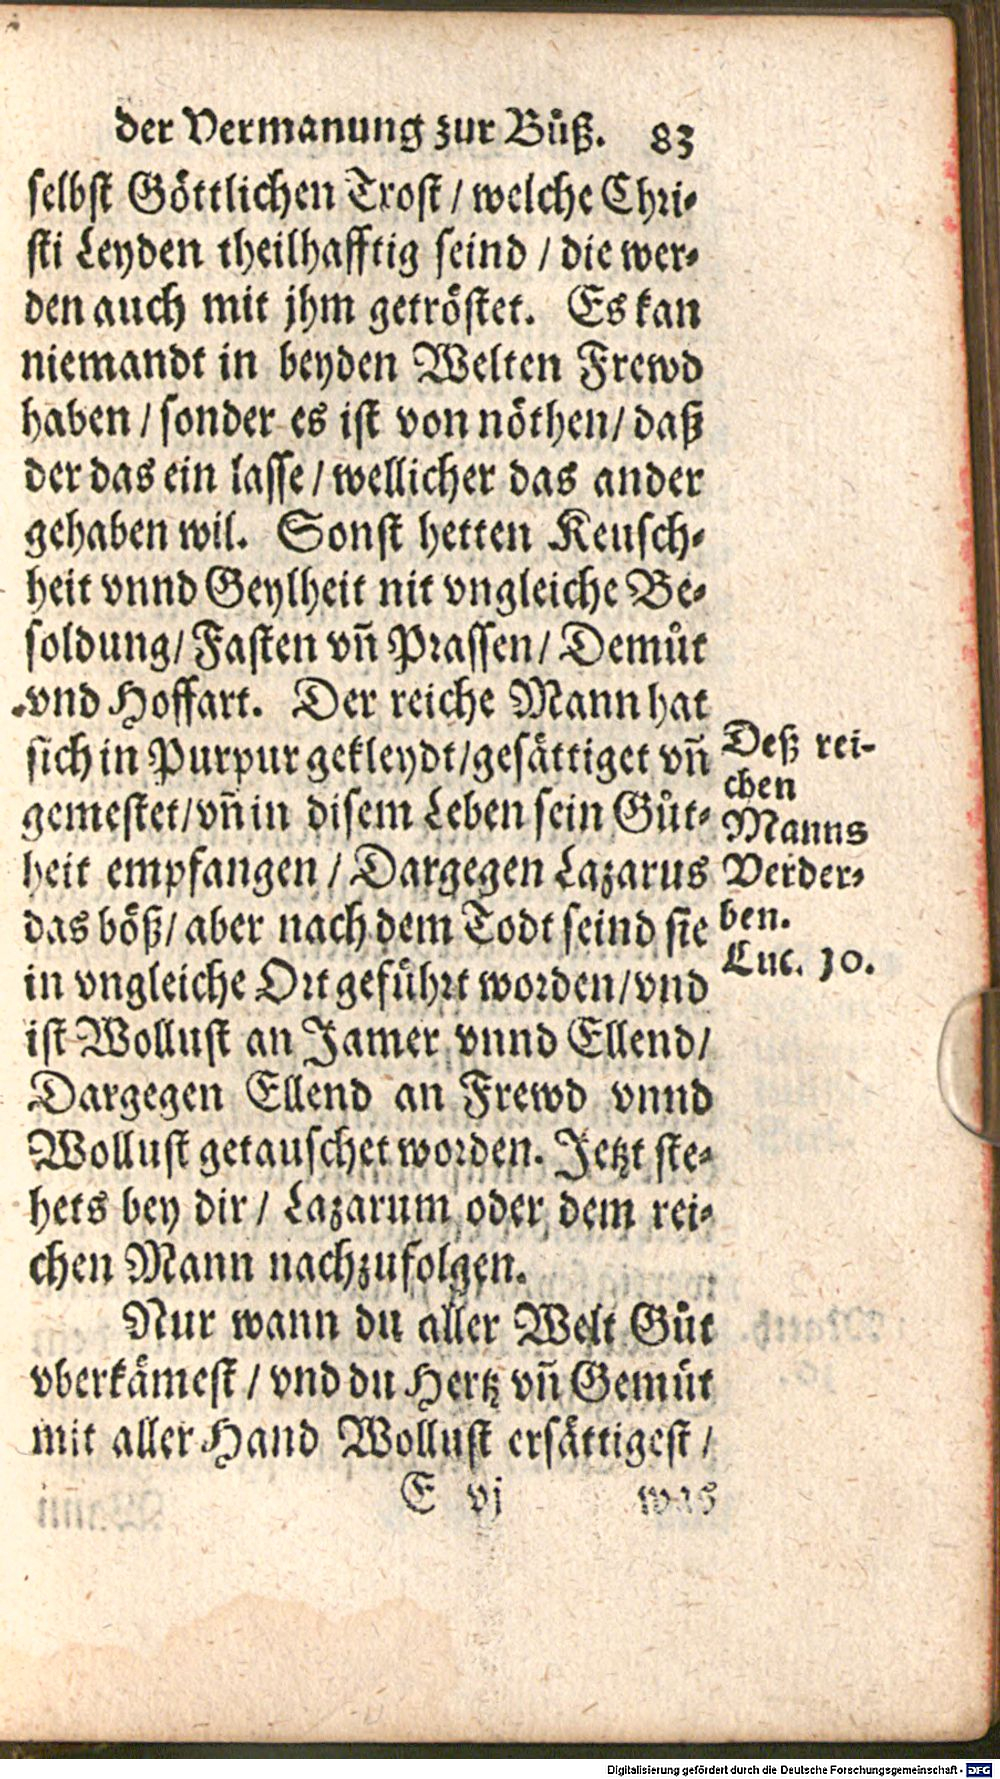 der Vermanung zur Bůß. 83
selbst Göttlichen Trost / welche Chri-
sti Leyden theilhafftig seind / die wer-
den auch mit jhm getröstet. Es kan
niemandt in beyden Welten Frewd
haben / sonder es ist von nöthen / daß
der das ein lasse / wellicher das ander
gehaben wil. Sonst hetten Keusch-
heit vnnd Geylheit nit vngleiche Be-
soldung / Fasten vñ Prassen / Demůt
vnd Hoffart. Der reiche Mann hat
sich in Purpur gekleydt / gesättiget vñ
gemestet / vñ in disem Leben sein Gůt-
heit empfangen / Dargegen Lazarus
das böß / aber nach dem Todt seind sie
in vngleiche Ort geführt worden / vnd
ist Wollust an Jamer vnnd Ellend /
Dargegen Ellend an Frewd vnnd
Wollust getauschet worden. Jetzt ste-
hets bey dir / Lazarum oder dem rei-
chen Mann nachzufolgen.
Nur wann du aller Welt Gůt
vberkämest / vnd du Hertz vñ Gemüt
mit aller Hand Wollust ersättigest /
E vj was
Deß rei-
chen
Manns
Verder-
ben.
Luc. 10.
Digitalisierung gefördert durch die Deutsche Forschungsgemeinschaft - DFG